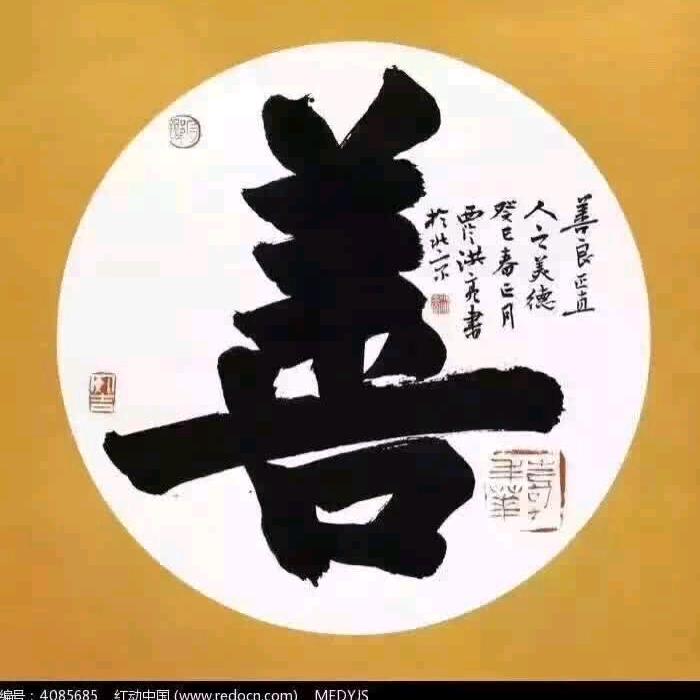 善
善良正直
人之美德
癸巳春正月
贾洪亮书
於北京
编号：4085685 红动中国 (www.redocn.com) MEDYJS